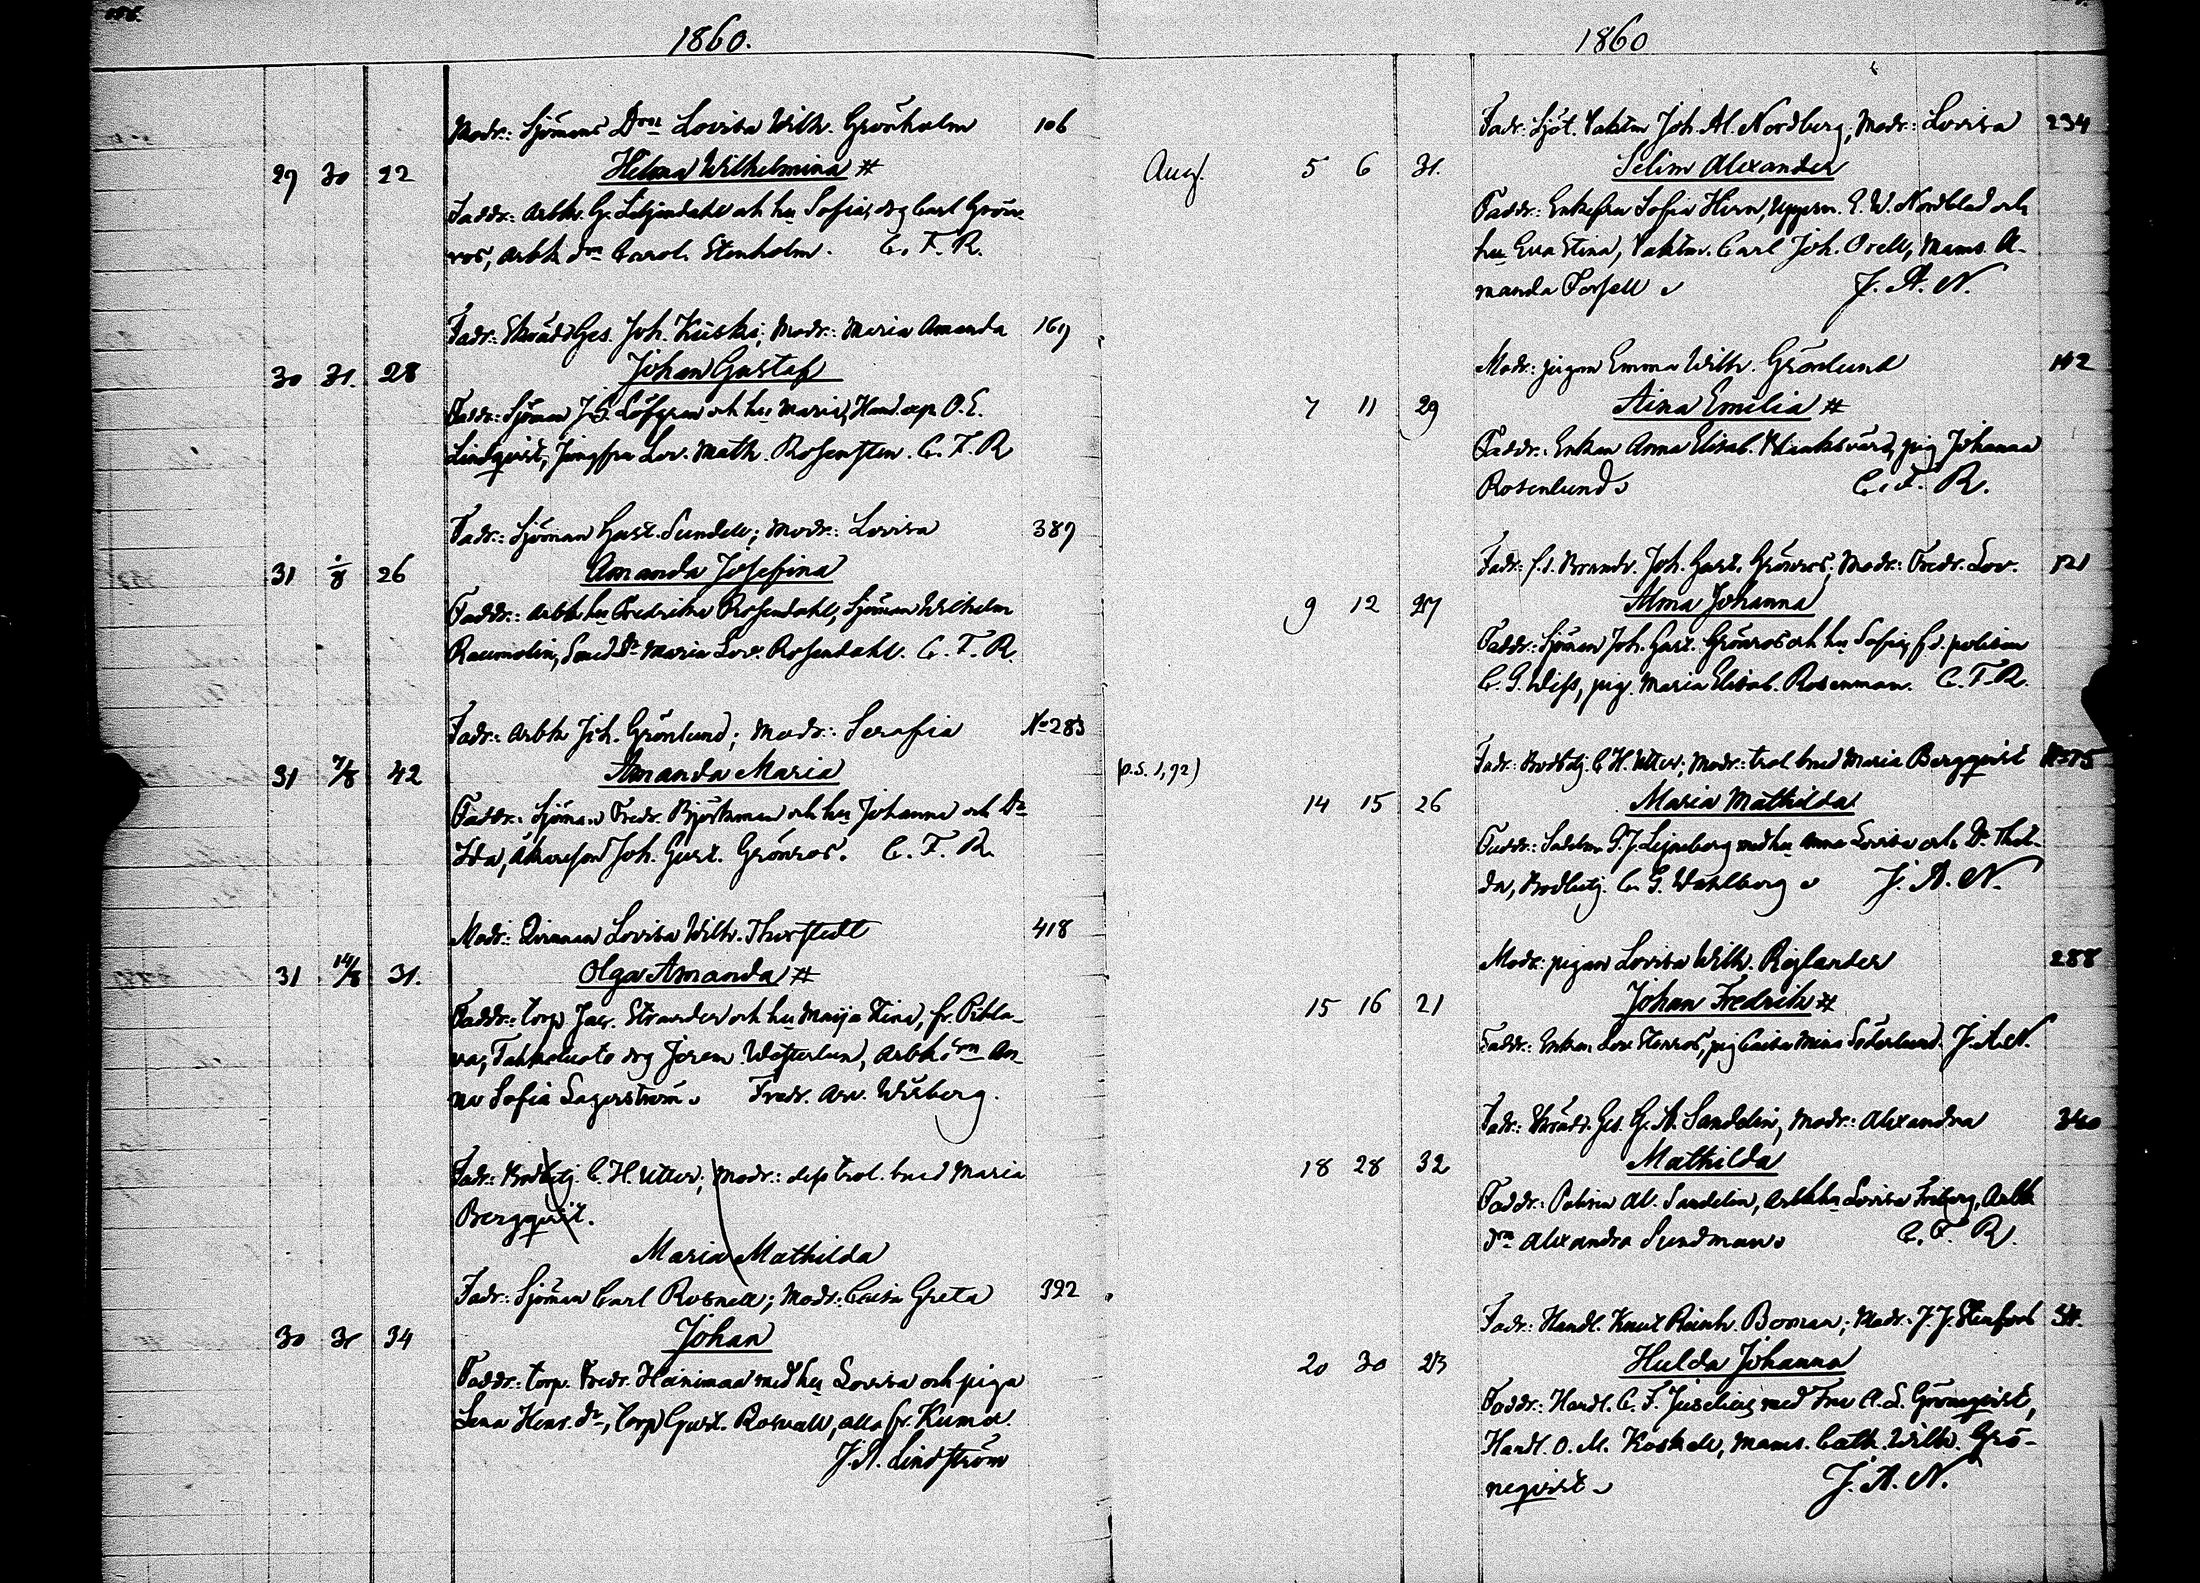 1860.
Modr: Sjömans Dron Lovisa Wilh. Grönholm 106
29 30 22 Helma Wilhelmina #
Faddr: Arbk. G. Liljendahl och hu Sofia, drg Carl Grön-
ros, Arbk dr Carol. Stenholm. C. F. R.
Fadr: SkrädGes. Joh. Kuski; Modr: Maria Amanda 169
30 31. 28 Johan Gustaf
Faddr: Sjöman J. S. Löfgren och hu Maria, Hand. exp. O. E.
Lindqvist, Jungfru Lov. Math. Rosensten. C. F. R
Fadr: Sjöman Gust. Sundell; Modr: Lovisa 389
31 1/8 26 Amanda Josefina
Faddr: Arbk hu Fredrika Rosendahl, Sjöman Wilhelm
Raumolin, Smed Dr Maria Lov. Rosendahl. C. F. R.
Fadr: Arbk Joh. Grönlund; Modr: Serafia No 283
31 7/8 42 Amanda Maria
Faddr: Sjöman Fredr. Björkman och hu Johanna och Dr
Ida, Joh. Gust. Grönros. C. F. R.
Modr: Qvinnan Lovisa Wilh. Thorstedt 418
31 14/8 31. Olga Amanda #
Faddr: Torp Jac. Strander och hu Maija Stina, fr. Pihla-
va, Tahkoluoto drg Jerem Westerlund, Arbk drn An-
na Sofia Lagerström. Fredr. Arv. Wisberg.
Fadr: Bodbetj. C. H. Utter; Modr: dess trol. brud Maria
Bergqvist.
Maria Mathilda
Fadr: Sjöman Carl Rosnell; Modr: Caisa Greta 392
30 31 34 Johan
Faddr: Torp. Fredr. Heinimaa med hu Lovisa och piga
Lena Henr. dr, Torp Gust. Rosvall, alla fr. Kumo.
J. A. Lindström
1860
Fadr: Sjöt. Vaktm Joh. Al. Nordberg, Modr: Lovisa 234
Aug. 5 6 31. Selim Alexander
Faddr: Enkefru Sofia Hirn, Uppsn. E. W. Nordblad och
hu Eva Stina, Vaktm. Carl Joh. Orell, Mams. A-
manda Forsell J. A. N.
Modr: pigan Emma Wilh. Grönlund 142
7 11 29 Aina Emilia #
Faddr: Enkan Anna Elisab. Klinksvärd, pig Johanna
Rosenlund C. F. R.
Fadr: f.d. Brandv. Joh. Gust. Grönros; Modr: Fredr. Lov. 121
9 12 27 Alma Johanna
Faddr: Sjöman Joh. Gust. Grönros och hu Sofia, f.d. polisen
C. G. Wiss, pig. Maria Elisab. Rosenman. C. F. R.
Fadr: Bodbetj. C. H. Utter; Modr: trol. brud Maria Bergqvist
(p.S. 1,92)
14 15 26 Maria Mathilda
Faddr: Sadelm. G. J. Lejneberg med hu Anna Lovisa och Dr Thil-
da, Bodbetj. C. G. Wahlberg J. A. N.
Modr: pigan Lovisa Wilh. Reglander 288
15 16 21 Johan Fredrik #
Faddr: Enkan Lov. Stenros, pig Caisa Mina Söderlund. J. A. N.
Fadr: Skrädd. Ges. G. A. Sandelin, Modr: Alexandra 340
18 28 32 Mathilda
Faddr: Polisen Al. Sandelin, Arbkhu Lovisa Friberg, Arbk
drn Alexandra Sundman C. F. R.
Fadr: Handl. Knut Reinh. Boman; Modr: J. J. Stenfors 34.
20 30 23 Hulda Johanna
Faddr: Handl. C. F. Juselius med Fru A. L. Grönqvist,
Handl. O. M. Koskell, Mams. Cath. Wilh. Grö-
nqvist J. A. N.